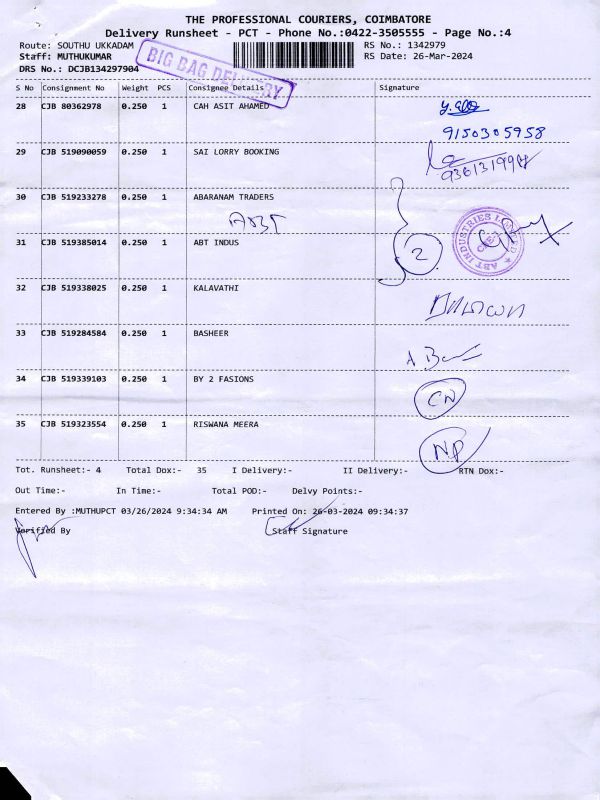 THE PROFESSIONAL COURIERS, COIMBATORE
Delivery Runsheet - PCT - Phone No.:0422-3505555 - Page No.:4
Route: SOUTHU UKKADAM
RS No.: 1342979
Staff: MUTHUKUMAR
RS Date: 26-Mar-2024
DRS No.: DCJB134297904
BIG BAG DELIVERY
S No Consignment No Weight PCS Consignee Details Signature
28 CJB 80362978 0.250 1 CAH ASIT AHAMED
9150305958
29 CJB 519090059 0.250 1 SAI LORRY BOOKING
30 CJB 519233278 0.250 1 ABARANAM TRADERS
31 CJB 519385014 0.250 1 ABT INDUS
2
ABT INDUSTRIES LIMITED
32 CJB 519338025 0.250 1 KALAVATHI
33 CJB 519284584 0.250 1 BASHEER
34 CJB 519339103 0.250 1 BY 2 FASIONS
CN
35 CJB 519323554 0.250 1 RISWANA MEERA
NP
Tot. Runsheet:- 4 Total Dox:- 35 I Delivery:- II Delivery:- RTN Dox:-
Out Time:- In Time:- Total POD:- Delvy Points:-
Entered By :MUTHUPCT 03/26/2024 9:34:34 AM Printed On: 26-03-2024 09:34:37
Verified By Staff Signature